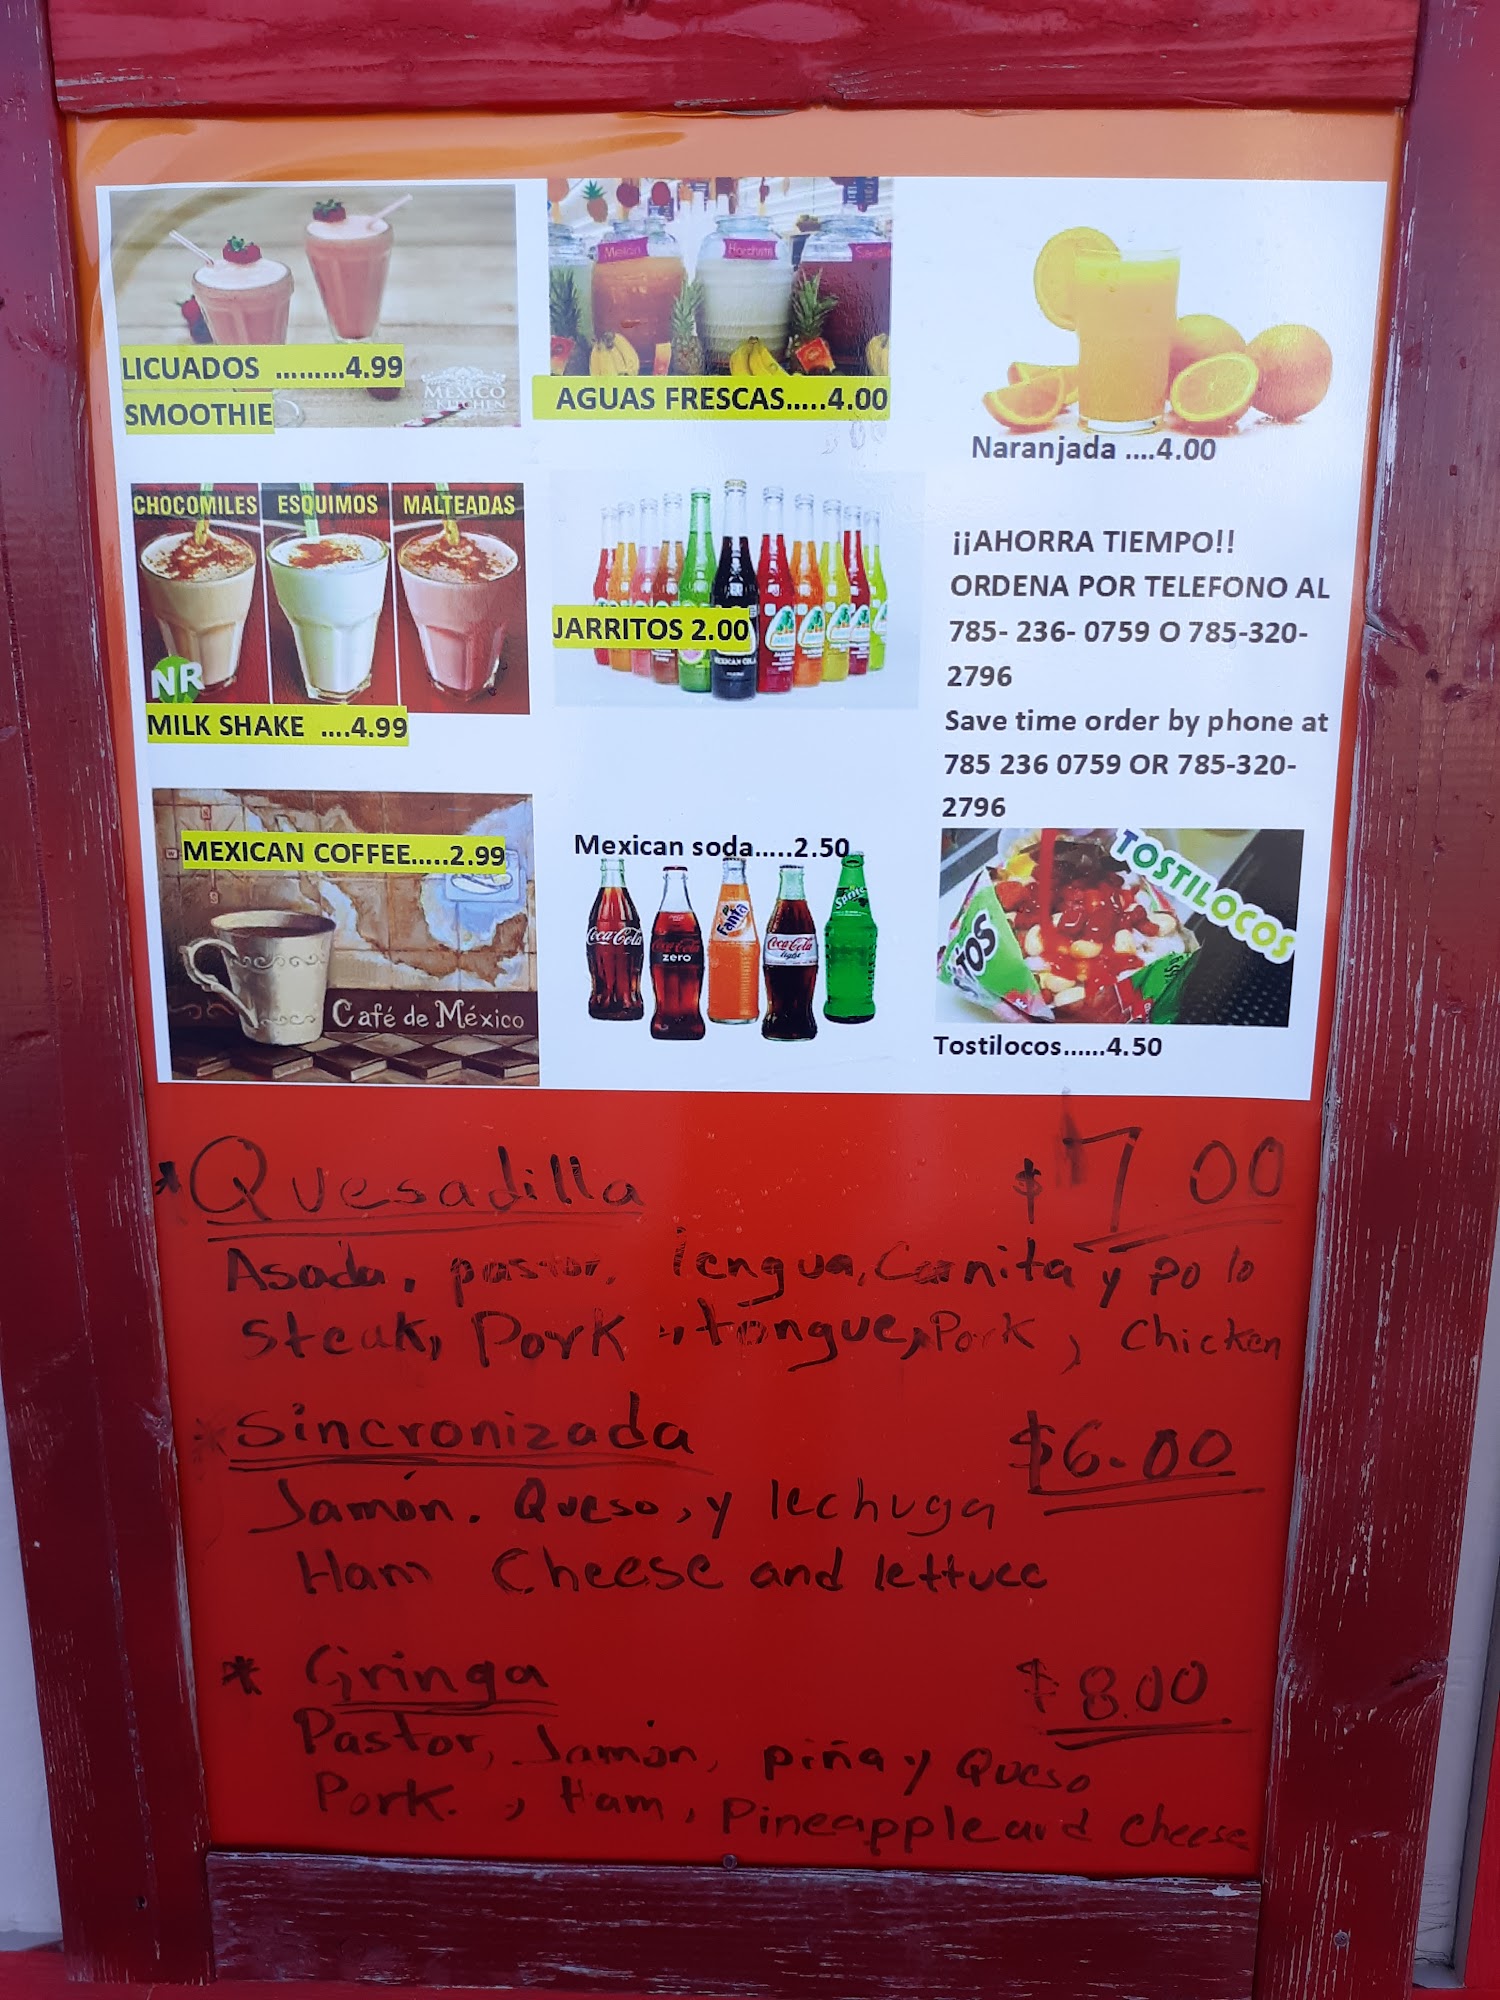 LICUADOS .........4.99
SMOOTHIE
MEXICO
KITCHEN
Melon
Horchata
AGUAS FRESCAS.....4.00
Naranjada ....4.00
CHOCOMILES ESQUIMOS MALTEADAS
NR
MILK SHAKE ....4.99
JARRITOS 2.00
MEXICAN COLA
¡¡AHORRA TIEMPO!!
ORDENA POR TELEFONO AL
785- 236- 0759 O 785-320-
2796
Save time order by phone at
785 236 0759 OR 785-320-
2796
MEXICAN COFFEE.....2.99
Café de México
Mexican soda.....2.50
Coca-Cola
Coca-Cola
zero
Fanta
Coca-Cola
light
Sprite
TOSTILOCOS
TOS
Tostilocos......4.50
* Quesadilla $7 00
Asada, pastor, lengua, Carnita y po lo
Steak, Pork , tongue, Pork , chicken
* Sincronizada $6.00
Jamón. Queso, y lechuga
Ham Cheese and lettuce
* Gringa $8.00
Pastor, Jamón, piña y Queso
Pork. , Ham, Pineapple and cheese